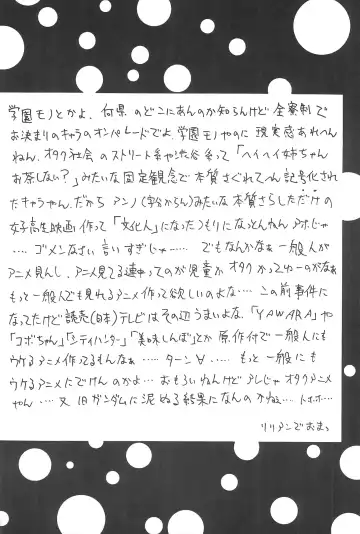 学園モノとかよ、何県のどこにあんのか知らんけど全寮制で
お決まりのキャラのオンパレードでよ、学園モノやのに現実感あれへん
ねん、オタク社会のストリート系や渋谷系って「ヘイヘイ姉ちゃん
お茶しない?」みたいな固定観念で本質さぐれてへん記号化され
たキャラやん、だからアンノみたいな本質さらしただけの
女子高生映画作って「文化人」になったつもりになっとんねん、アホじゃ
‥‥ゴメンなさい言いすぎじゃ‥‥ でもなんかなぁ一般人が
アニメ見んし、アニメ見てる連中ってのが児童かオタクかってゆーのがなぁ
もっと一般でも見れるアニメ作って欲しいのよな‥‥この前事件に
なってたけど読売(日本)テレビはその辺うまいよな、「YAWARA」や
「コボちゃん」「シティハンター」「美味しんぼ」とか原作付で一般人にも
ウケるアニメ作ってるもんなぁ‥‥ターン∀‥‥もっと一般にも
ウケるアニメにでけんのかよ‥‥おもろいねんけどアレじゃオタクアニメ
やん‥‥又旧ガンダムに泥ぬる結果になんのかねぇ‥‥トホホ‥‥
リリアンでおまっ